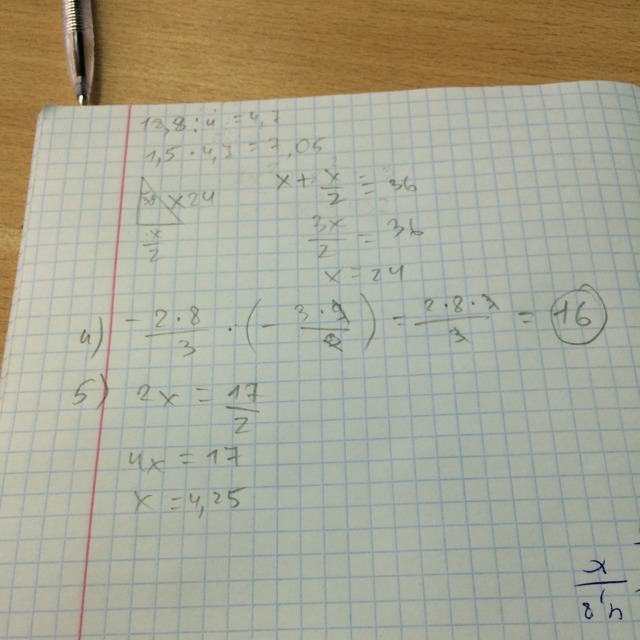 18,8 : 4 = 4,7
1,5 · 4,7 = 7,05
x 24
x/2
x + x/2 = 36
3x/2 = 36
x = 24
4) - 2·8/3 · (- 3·9/9) = 2·8·3/3 = 16
5) 2x = 17/2
4x = 17
x = 4,25